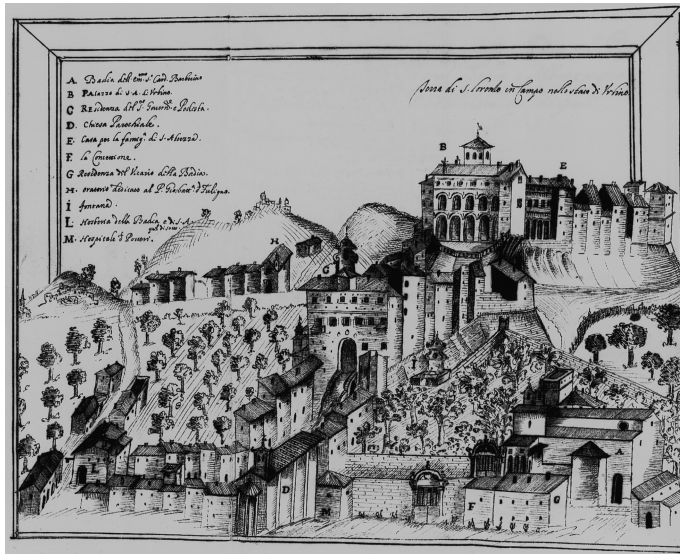 A. Badia dell'em.mo S.r Card. Barberino
B Palazzo di S. A. d'Urbino.
C Residenza del S. Govern.re e Podestà.
D. Chiesa Parochiale.
E. Casa per la famig.a di S. Altezza.
F. la Concettione.
G Residenza del Vicario della Badia.
H. oratorio dedicato al P.
I fontana.
L. Hosteria della Badia e di S. A.
M. Hospitale d Poveri.
Terra di S. Lorenzo in Campo nello stato di Urbino
B
E
H
G
C
D
M
F
G
A